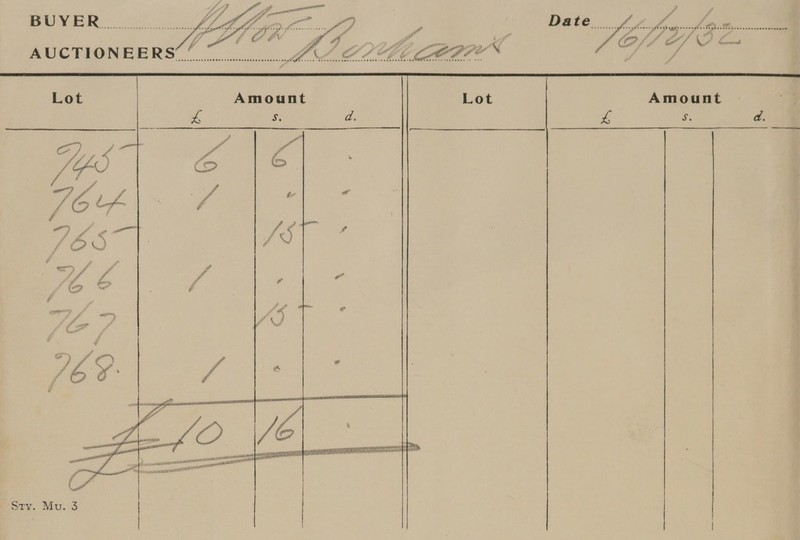 BUYER Alton Date 16/12/32
AUCTIONEERS Bonhams
Lot Amount Lot Amount
£ s. d. £ s. d.
745 6 6 .
764 1 " "
765 15 "
766 1 " "
767 15 "
768. 1 " "
£10 16 .
Sty. Mu. 3